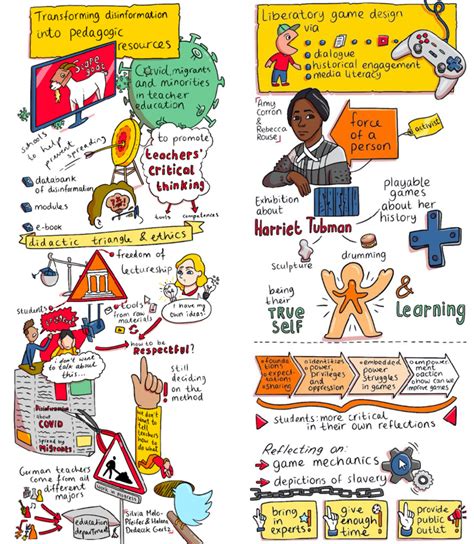 Transforming disinformation
into pedagogic
resources
Scape
goat
Covid, migrants
and minorities
in teacher
education
schools
to help
prevent spreading
to promote
teachers'
critical
thinking
tools
competences
databank
of disinformation
modules
e-book
didactic triangle & ethics
freedom of
lectureship
students
tools
from raw
materials
I have my
own ideas!
how to be
Respectful?
i don't want
to talk about
this...
still
deciding
on the
method
we don't
want to
tell
teachers
how to
do it
Disinformation
about
COVID
spread by
Migrants
German teachers
come from all
different
majors
work in progress
education
department
Silvia Melo-
Pfeifer & Helena
Dedecek Gertz
Liberatory game design
via
dialogue
historical engagement
media literacy
Amy
Corron &
Rebecca
Rouse
force
of a
person
activist
Exhibition
about
Harriet Tubman
playable
games
about her
history
sculpture
drumming
being
their
TRUE
SELF
&
Learning
foundations
expectations
sharing
identities
power,
privileges
and
oppression
embedded
power
struggles
in games
empowerment
action
how can we
improve games
students: more critical
in their own reflections
Reflecting on:
game mechanics
depictions of slavery
bring
in
experts!
give
enough
time!
provide
public
outlet!